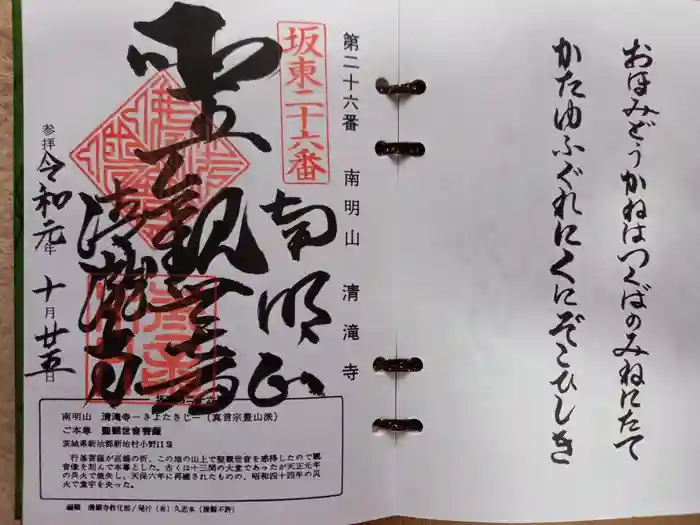 おほみどうかねはつくばのみねにたて
かたゆふぐれにくにぞこひしき
第二十六番　南明山　清滝寺
坂東二十六番
南明山
観世音
清瀧寺
参拝 令和元年十月廿五日
南明山　清滝寺―きよたきじ―（真言宗豊山派）
ご本尊　聖観世音菩薩
茨城県新治郡新治村小野
行基菩薩が巡錫の折、この地の山上で聖観世音を感得したので観
音像を刻んで本尊とした。古くは十三間の大堂であったが天正元年
の兵火で焼失し、天保六年に再建されたものの、昭和四十四年の災
火で堂宇を失った。
編輯　満願寺教化部／発行（有）久志本（複製不許）